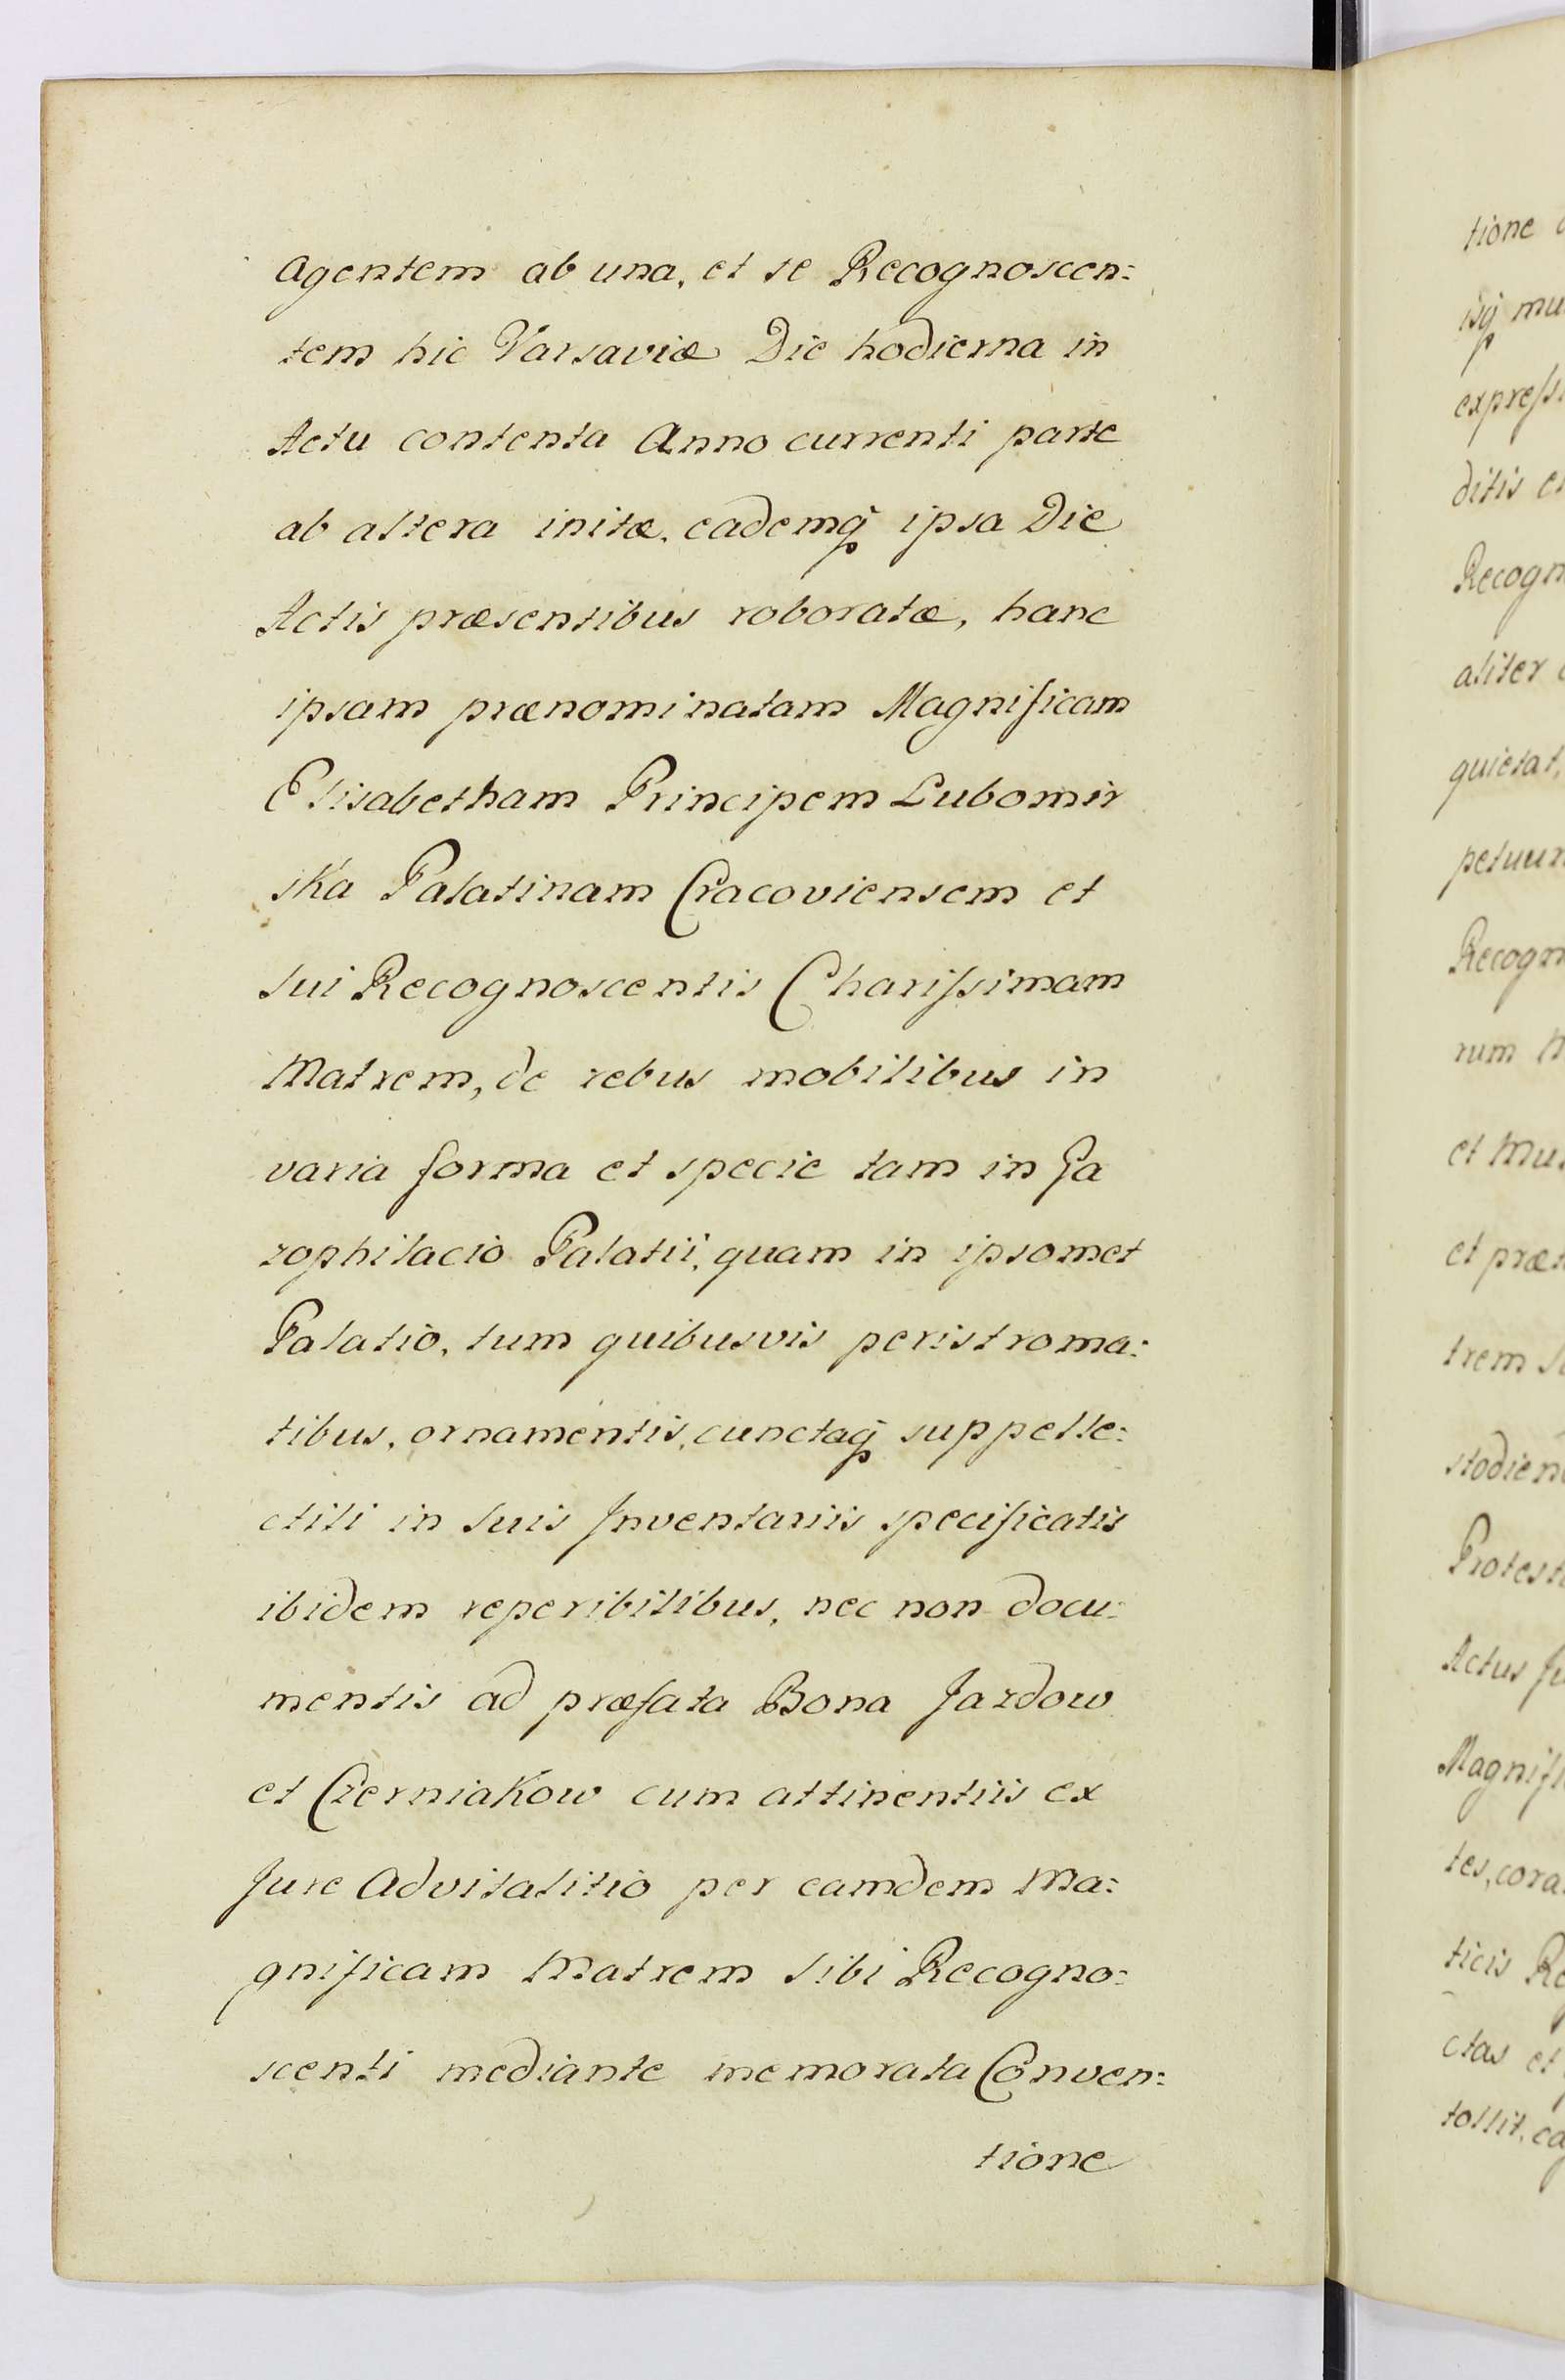 Agentem ab una, et se Recognoscen:
tem hic Varsaviæ Die hodierna in
Actu contenta Anno currenti parte
ab altera initæ, eademq ipsa Die
Actis præsentibus roboratæ, hanc
ipsam prænominatam Magnificam
Elisabetham Principem Lubomir
ska Palatinam Cracoviensem et
sui Recognoscentis Charissimam
Matrem, de rebus mobilibus in
varia forma et specie tam in Ga
zophilacio Palatii, quam in ipsomet
Palatio, tum quibusvis peristroma:
tibus, ornamentis, cunctaq suppelle:
ctili in suis Inventariis specificatis
ibidem reperibilibus, nec non docu:
mentis ad præfata Bona Jazdow
et Czerniakow cum attinentiis ex
Jure Advitalitio per eamdem Ma:
gnificam Matrem sibi Recogno:
scenti mediante memorata Conven:
tione
tione
isq mu
express
ditis e
Recogn
aliter
quietat,
petuum
Recogn
rum
et Mu
et præ
trem
stodien
Protest
Actus Ju
Magnifi
tes, cora
ticis Re
ctas et
tollit, ea